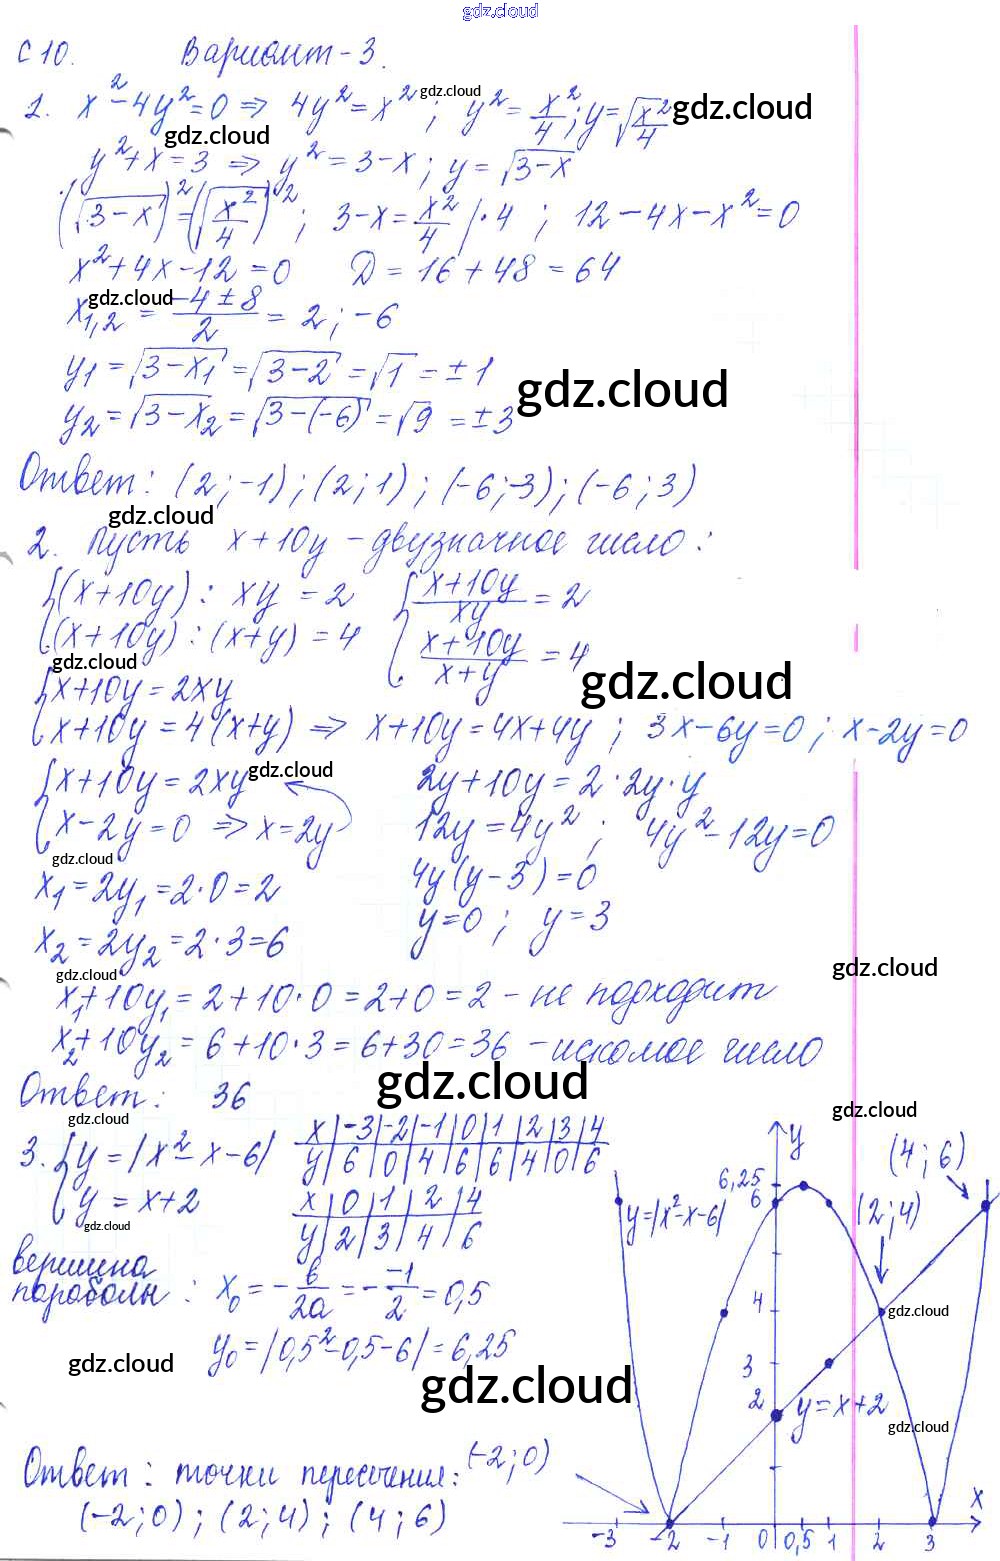 gdz.cloud
С 10. Вариант - 3.
1. x² - 4y² = 0 ⇒ 4y² = x² ; y² = x²/4 ; y = √(x²/4)
gdz.cloud
gdz.cloud
gdz.cloud
y² + x = 3 ⇒ y² = 3 - x ; y = √(3 - x)
(√(3 - x))² = (√(x²/4))² ; 3 - x = x²/4 | · 4 ; 12 - 4x - x² = 0
x² + 4x - 12 = 0 D = 16 + 48 = 64
gdz.cloud
x1,2 = (-4 ± 8)/2 = 2 ; -6
y1 = √(3 - x1) = √(3 - 2) = √1 = ± 1
gdz.cloud
y2 = √(3 - x2) = √(3 - (-6)) = √9 = ± 3
Ответ : (2 ; -1) ; (2 ; 1) ; (-6 ; -3) ; (-6 ; 3)
gdz.cloud
2. Пусть x + 10y - двузначное число :
{(x + 10y) : xy = 2 {(x + 10y)/xy = 2
(x + 10y) : (x + y) = 4 (x + 10y)/(x + y) = 4
gdz.cloud
gdz.cloud
{x + 10y = 2xy
x + 10y = 4(x + y) ⇒ x + 10y = 4x + 4y ; 3x - 6y = 0 ; x - 2y = 0
gdz.cloud
{x + 10y = 2xy 2y + 10y = 2 · 2y · y
x - 2y = 0 ⇒ x = 2y 12y = 4y² ; 4y² - 12y = 0
gdz.cloud
x1 = 2y1 = 2 · 0 = 2 4y(y - 3) = 0
x2 = 2y2 = 2 · 3 = 6 y = 0 ; y = 3
gdz.cloud
gdz.cloud
x1 + 10y1 = 2 + 10 · 0 = 2 + 0 = 2 - не подходит
x2 + 10y2 = 6 + 10 · 3 = 6 + 30 = 36 - искомое число
gdz.cloud
Ответ : 36
gdz.cloud
gdz.cloud
3. {y = |x² - x - 6|
y = x + 2
gdz.cloud
x | -3 | -2 | -1 | 0 | 1 | 2 | 3 | 4
y | 6 | 0 | 4 | 6 | 6 | 4 | 0 | 6
x | 0 | 1 | 2 | 4
y | 2 | 3 | 4 | 6
вершина
параболы : x0 = - б/2a = - -1/2 = 0,5
y0 = |0,5² - 0,5 - 6| = 6,25
gdz.cloud
gdz.cloud
Ответ : точки пересечения :
(-2 ; 0) ; (2 ; 4) ; (4 ; 6)
y
(4 ; 6)
6,25
6
y = |x² - x - 6|
(2 ; 4)
4
gdz.cloud
3
2
y = x + 2
gdz.cloud
(-2 ; 0)
x
-3 -2 -1 0 0,5 1 2 3